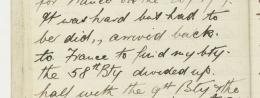 It was hard but had to
be did, , arrived back
to France to find my bty.
the 58th Bty divided up.
half with the 9th Bty & the